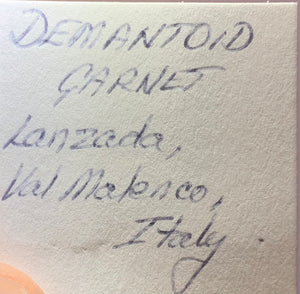 DEMANTOID
GARNET
Lanzada,
Val Malenco,
Italy.